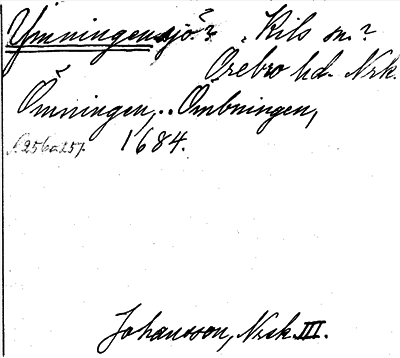 Ymningen sjö?. Kils sn.?
Örebro hd. Nrk.
Ömningen, .. Ömbningen,
s. 256a257. 1684.
Johansson, Nrk. III.